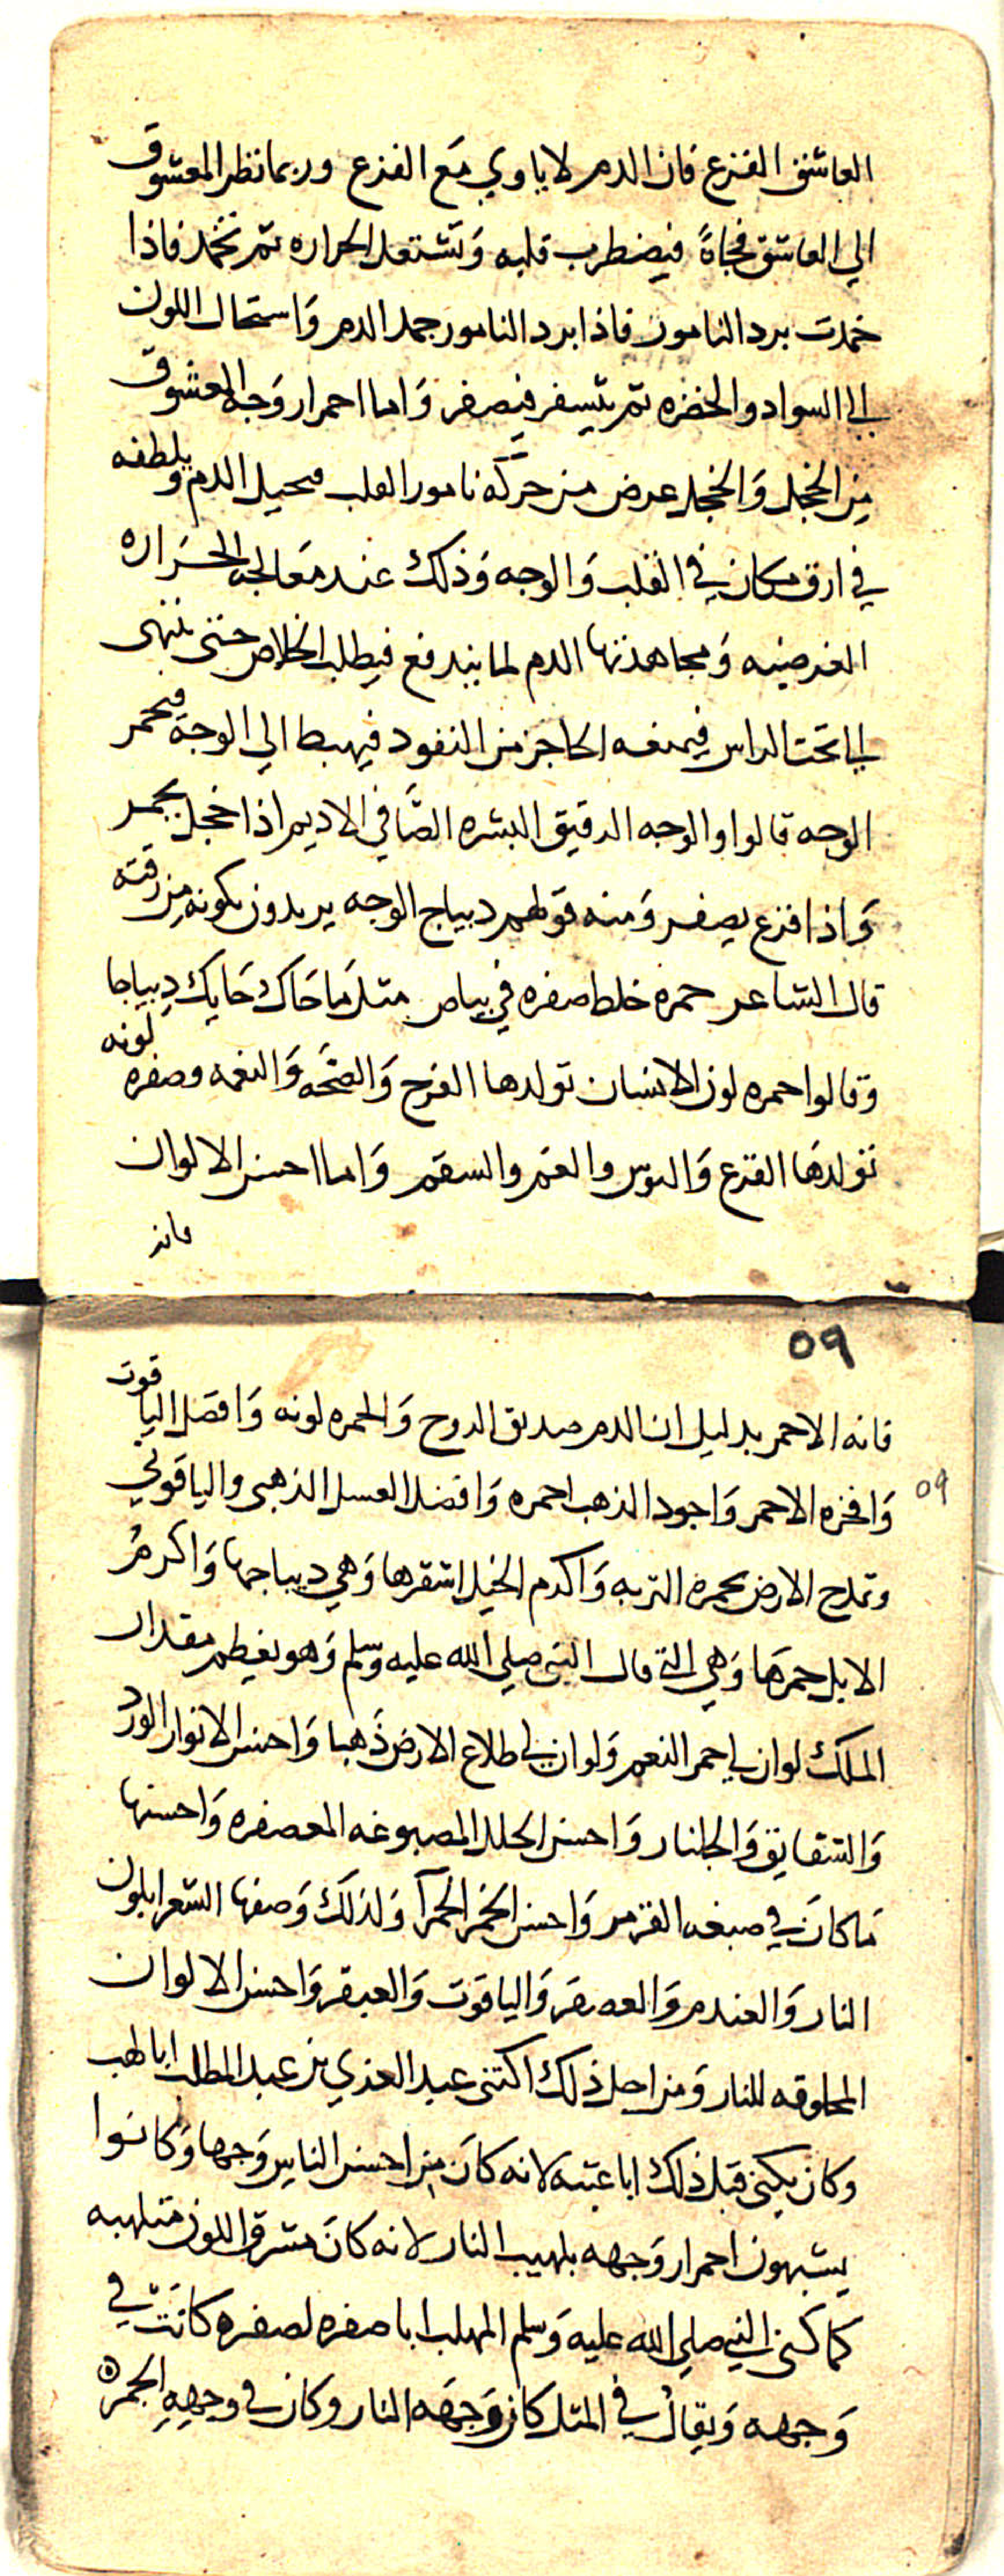 العاشق الفزع فان الدم لا ياوي مَع الفزع وربما نظر المعشوق
الي العاشق فجاةً فيضطرب قلبه وَتشتعل الحراره ثم تخمد فاذا
خمدت برد النامور فاذا برد النامور جمد الدم وَاستحال اللون
الي السواد والخضره ثم يتسفر فيصفر وَاما احمرار وَجه المعشوق
من الخجل وَالخجل عرض من حركة نامور القلب فيحيل الدم ويلطفه
في ارق مكان في القلب وَالوجه وَذلك عند مَعالجه الحَراره
الغرضيه وَمجاهدتها الدم لما يندفع فيطلب الخلاص حتى ينتهى
الي تحت الراس فيمنعه الحاجز من النفود فيهبط الي الوجه فيحمر
الوجه قالوا والوجه الدقيق البشره الصَّافي الاديم اذا خجل يحمر
وَاذا فزع يصفر وَمنه قولهم ديباج الوجه يريدون بكونه من رقته
قال الشاعر حمره خلط صفره في بياض مثل مَا حَاك حَايك دِيباجا
وقالوا حمره لون الانسان تولدها الفرح وَالصحَه وَالنعمه وصفره لونه
تولدهَا الفزع وَالبوس والغم والسقم وَاما احسن الالوان
فانه
٥٩
فانه الاحمر بدليل ان الدم صديق الروح وَالحمره لونه وَافضل الياقوت
٥٩
وَافخره الاحمر وَاجود الذهب احمره وَافضل العسل الذهبى والياقوتي
وتمدح الارض بحمره التربه وَاكرم الخيل اشقرها وَهي ديباجها وَاكرمُ
الابل حمرهَا وَهي التي قال النبى صلي الله عليه وَسلم وَهو يعظم مقدار
الملك لو ان لي حمر النعم وَلو ان لي طلاع الارض ذَهبا وَاحسن الانوار الورد
وَالشقايق وَالجلنار وَاحسن الحلل المصبوغه المعصفره وَاحسنها
مَا كانَ في صبغه القرمز وَاحسن الخمر الحمرآ وَلذلك وَصفها الشعرا بلون
النار وَالعندم وَالعصفر وَالياقوت وَالعبقر وَاحسن الالوان
المخلوقه للنار وَمن اجل ذلك اكتنى عبد العزي بن عبد المطلب ابا لهب
وكان يكنى قبل ذلك ابا عتبه لانه كانَ من احسن الناس وَجها وَكانوا
يشبهون احمرار وَجهه بلهيب النار لانه كانَ مشرق اللون متلهبه
كما كنى النبي صلي الله عليه وَسلم المهلب ابا صفره لصفره كانَت في
وَجهه وَيقالُ في المثل كان وَجهَه النار وكان في وجههِ الجمره